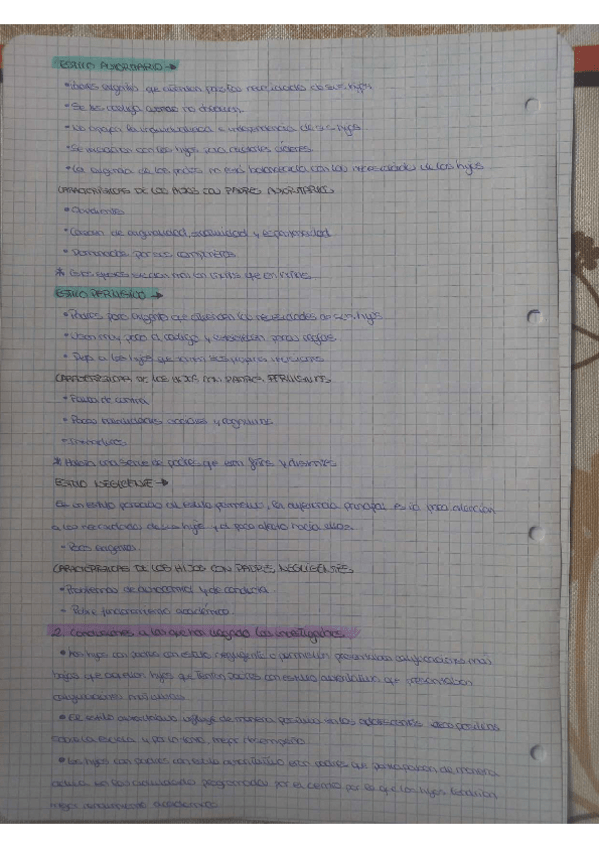 ESTILO AUTORITARIO →
• Padres exigentes que atienden poco las necesidades de sus hijos
• Se les castiga cuando no obedecen
• No apoyan la independencia de sus hijos
• Se muestran con los hijos
• La exigencia de los padres no está balanceada con las necesidades de los hijos
CARACTERÍSTICAS DE LOS HIJOS CON PADRES AUTORITARIOS
• Obedientes
• Carecen de originalidad, y espontaneidad
• Dominados por sus compañeros
* más en que en
ESTILO PERMISIVO →
• Padres poco exigentes que atienden las necesidades de sus hijos
• Usan muy poco el castigo y establecen pocas reglas
• Deja a los hijos que
CARACTERÍSTICAS DE LOS HIJOS CON PADRES PERMISIVOS
• Falta de control
• Pocas habilidades sociales y cognitivas
• Inmaduros
* una serie de padres que son fríos y distantes
ESTILO NEGLIGENTE →
Es un estilo parecido al estilo permisivo, la diferencia principal es la poca atención
a las necesidades de sus hijos y el poco afecto hacia ellos.
- Poco exigentes.
CARACTERÍSTICAS DE LOS HIJOS CON PADRES NEGLIGENTES
• Problemas de autocontrol y de conducta
- Pobre funcionamiento académico.
2. Conclusiones a las que han llegado los investigadores
• Los hijos con padres con estilo negligente o permisivo calificaciones más
bajas que aquellos hijos que tenían padres con estilo autoritativo que presentaban
calificaciones más altas.
• El estilo autoritativo influye de manera positiva en los adolescentes
sobre la escuela y por lo tanto, mejor desempeño.
• Los hijos con padres con estilo autoritativo son padres que participaban de manera
activa en las actividades programadas por el centro por lo que los hijos tendrían
mejor rendimiento académico.